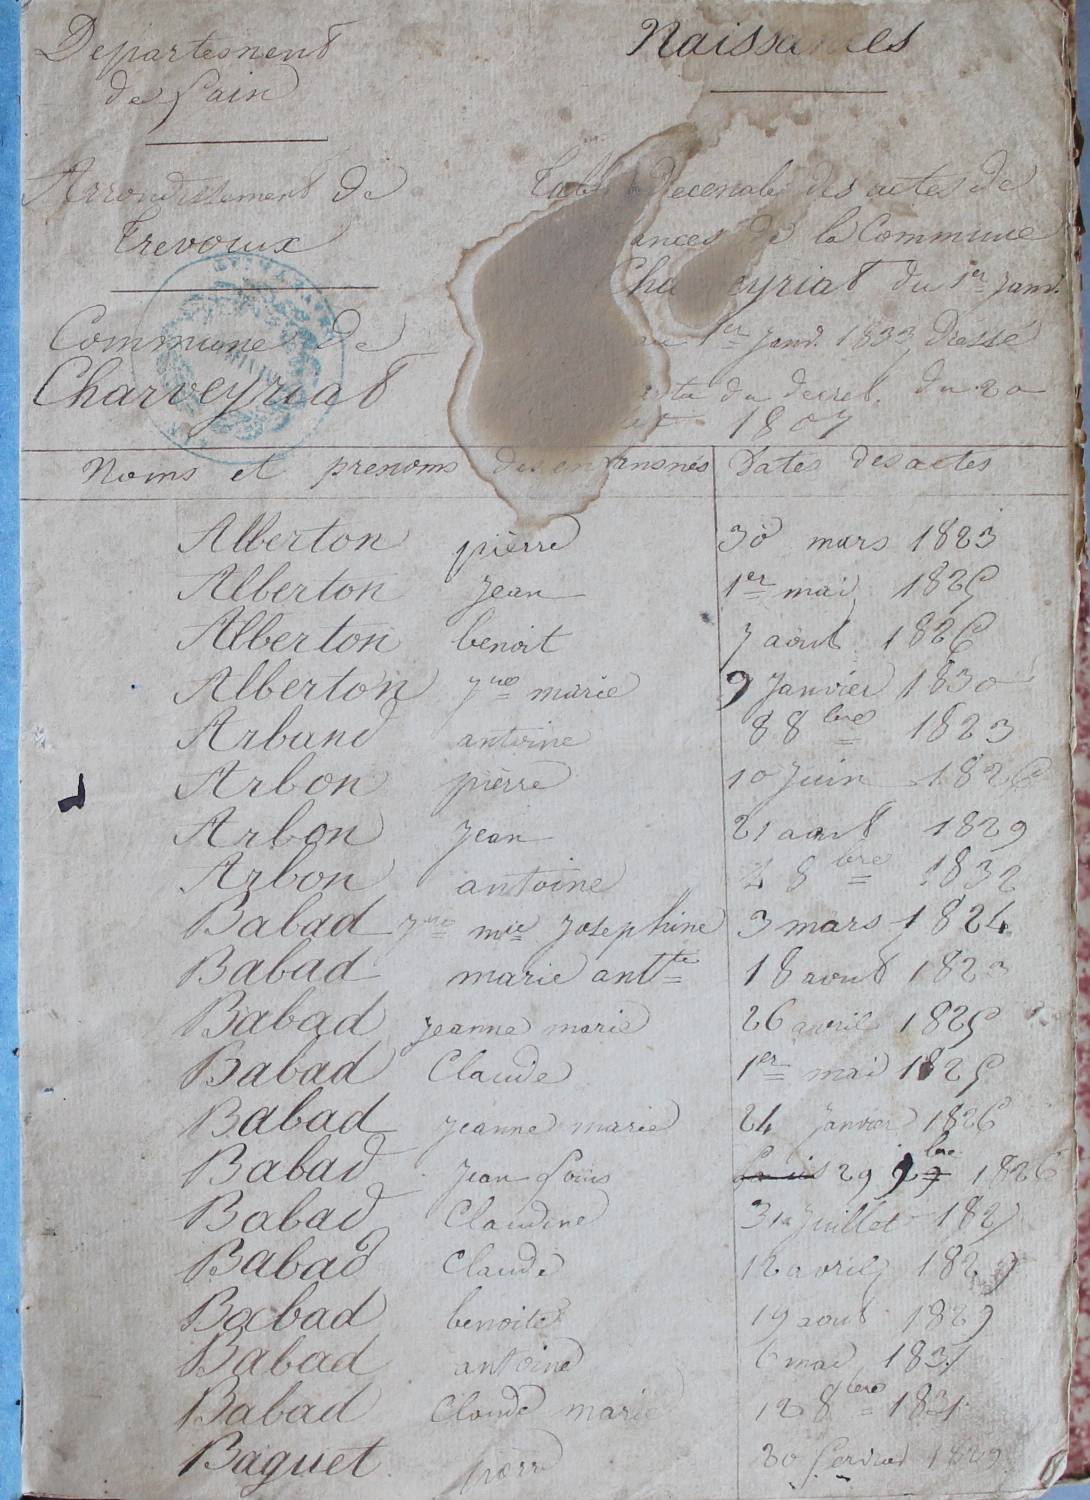 Departement
de Lain
Naissances
Arrondissement de
Trevoux
Commune de
Charveyriat
Table Decenale des actes de
ances de la Commune
Cha eyriat du 1er Janv.
au 1er Janv. 1833 Dressé
du decret. du 20
1807
Noms et prenoms des enfans nés | Dates des actes
Alberton pièrre 30 mars 1823
Alberton Jean 1er mai 1825
Alberton benoit 7 aout 1826
Alberton Jne marie 9 Janvier 1830
Arband antoine 8 8bre 1823
Arbon pièrre 10 Juin 1826
Arbon Jean 21 aout 1829
Arbon antoine 2 8bre 1832
Babad Jne mie Josephine 3 mars 1824
Babad marie antte 18 aout 1823
Babad Jeanne marie 26 avril 1825
Babad Claude 1er mai 1825
Babad Jeanne marie 24 Janvier 1826
Babad Jean Louis 29 9bre 1826
Babad Claudine 31 Juillet 1827
Babad Claude 12 avril 1829
Babad benoite 19 aout 1829
Babad antoine 6 mai 1831
Babad Claude marie 12 8bre 1831
Baguet pierre 20 fevrier 1829